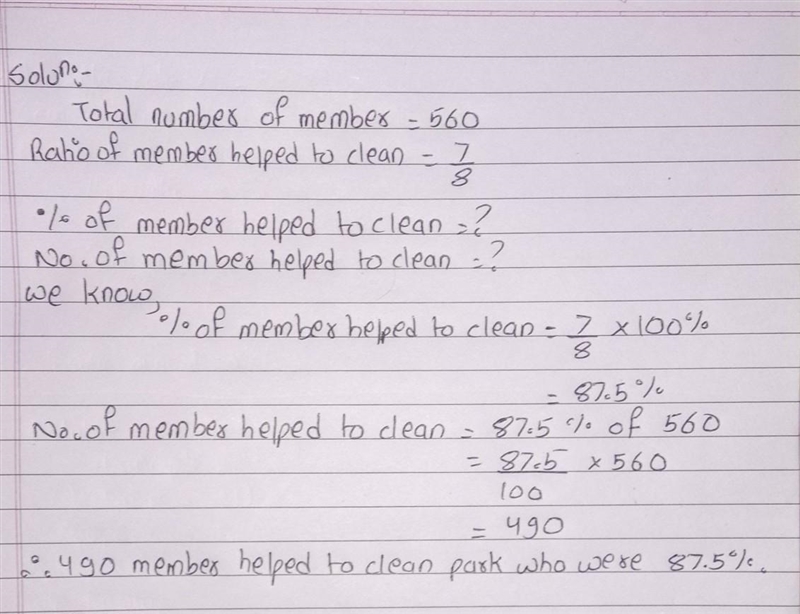 Solun:-
Total number of member = 560
Ratio of member helped to clean = 7/8
% of member helped to clean = ?
No. of member helped to clean = ?
we know,
% of member helped to clean = 7/8 × 100%
= 87.5%
No. of member helped to clean = 87.5% of 560
= 87.5/100 × 560
= 490
∴ 490 member helped to clean park who were 87.5%.